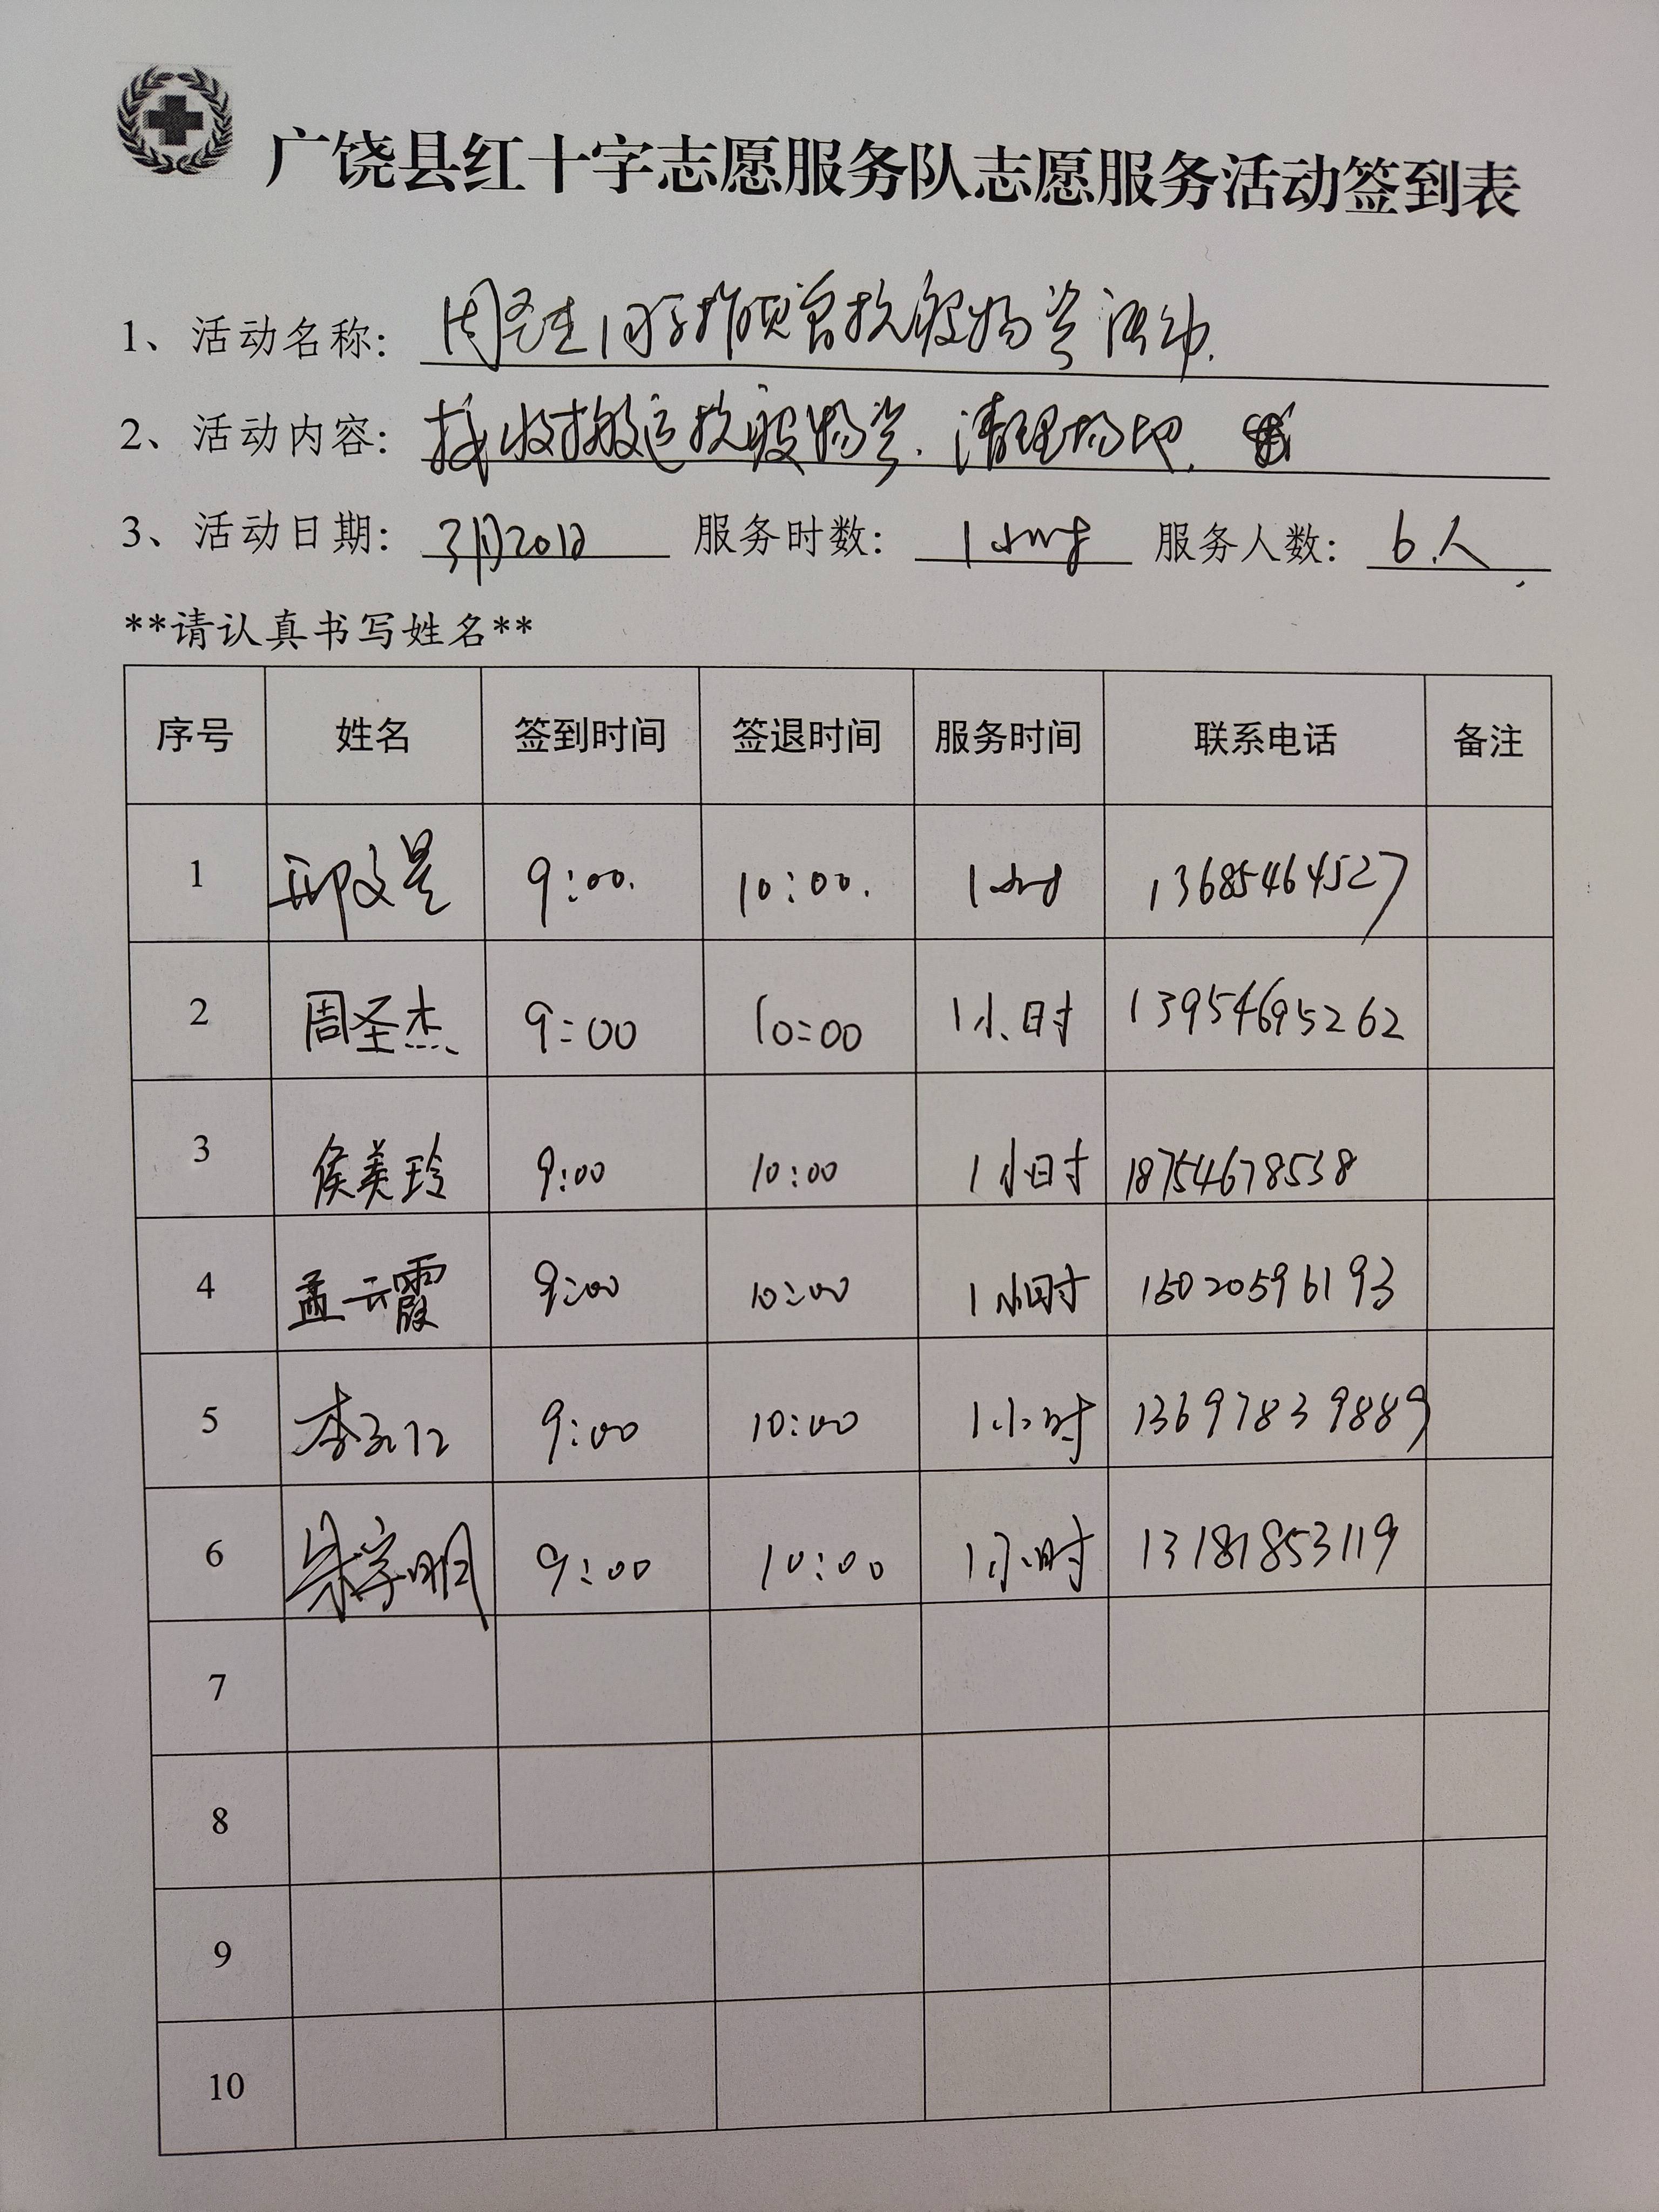 广饶县红十字志愿服务队志愿服务活动签到表
1、活动名称: 周圣杰同学捐赠抗疫物资活动.
2、活动内容: 接收搬运抗疫物资.清理场地.
3、活动日期: 3月20日 服务时数: 1小时 服务人数: 6人
**请认真书写姓名**
序号 姓名 签到时间 签退时间 服务时间 联系电话 备注
1 邢文景 9:00. 10:00. 1小时 13685464527
2 周圣杰 9:00 10:00 1小时 13954695262
3 侯美玲 9:00 10:00 1小时 18754678538
4 孟云霞 9:00 10:00 1小时 15020596193
5 李 9:00 10:00 1小时 13697839889
6 宇明 9:00 10:00 1小时 13181853119
7
8
9
10